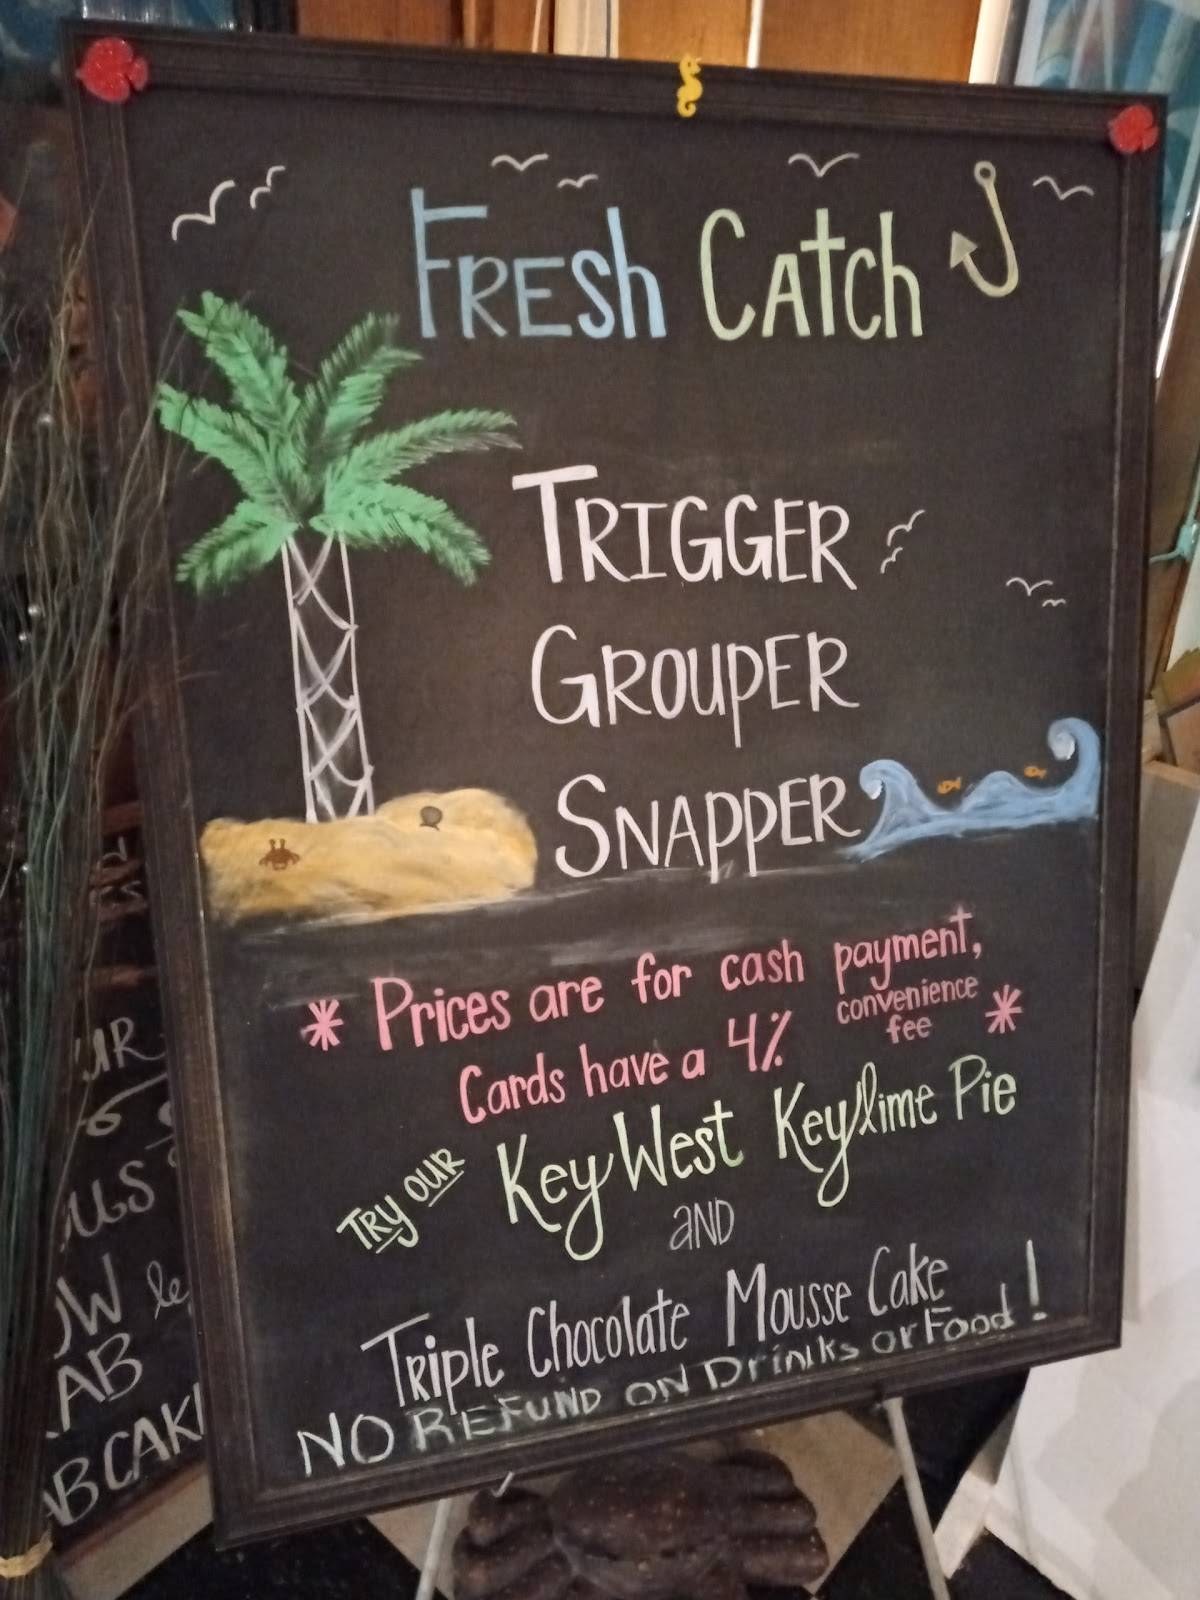 FRESh CAtch
TRIGGER
GROUPER
SNAPPER
* Prices are for cash payment,
Cards have a 4% convenience fee *
TRY OUR Key West Keylime Pie
AND
Triple Chocolate Mousse Cake
NO REFUND ON Drinks or Food!